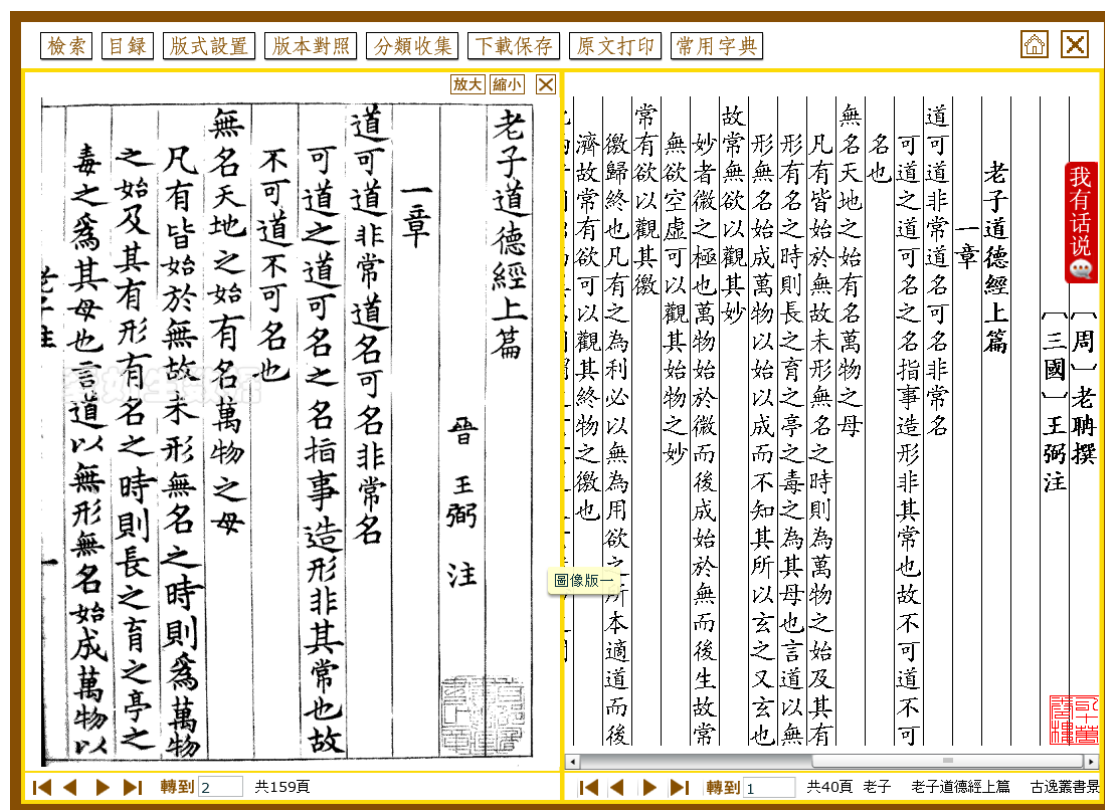 檢索 目録 版式設置 版本對照 分類收集 下載保存 原文打印 常用字典
放大 縮小
老子道德經上篇
晉 王弼 注
一章
道可道非常道名可名非常名
可道之道可名之名指事造形非其常也故
不可道不可名也
無名天地之始有名萬物之母
凡有皆始於無故未形無名之時則爲萬物
之始及其有形有名之時則長之育之亭之
毒之爲其母也言道以無形無名始成萬物以
轉到 2 共159頁
我有话说
〔周〕老聃撰
〔三國〕王弼注
老子道德經上篇
一章
道可道非常道名可名非常名
可道之道可名之名指事造形非其常也故不可道不可
名也
無名天地之始有名萬物之母
凡有皆始於無故未形無名之時則為萬物之始及其有
形有名之時則長之育之亭之毒之為其母也言道以無
形無名始成萬物以始以成而不知其所以玄之又玄也
故常無欲以觀其妙
妙者微之極也萬物始於微而後成始於無而後生故常
無欲空虛可以觀其始物之妙
常有欲以觀其徼
徼歸終也凡有之為利必以無為用欲之所本適道而後
濟故常有欲可以觀其終物之徼也
圖像版一
轉到 1 共40頁 老子 老子道德經上篇 古逸叢書景